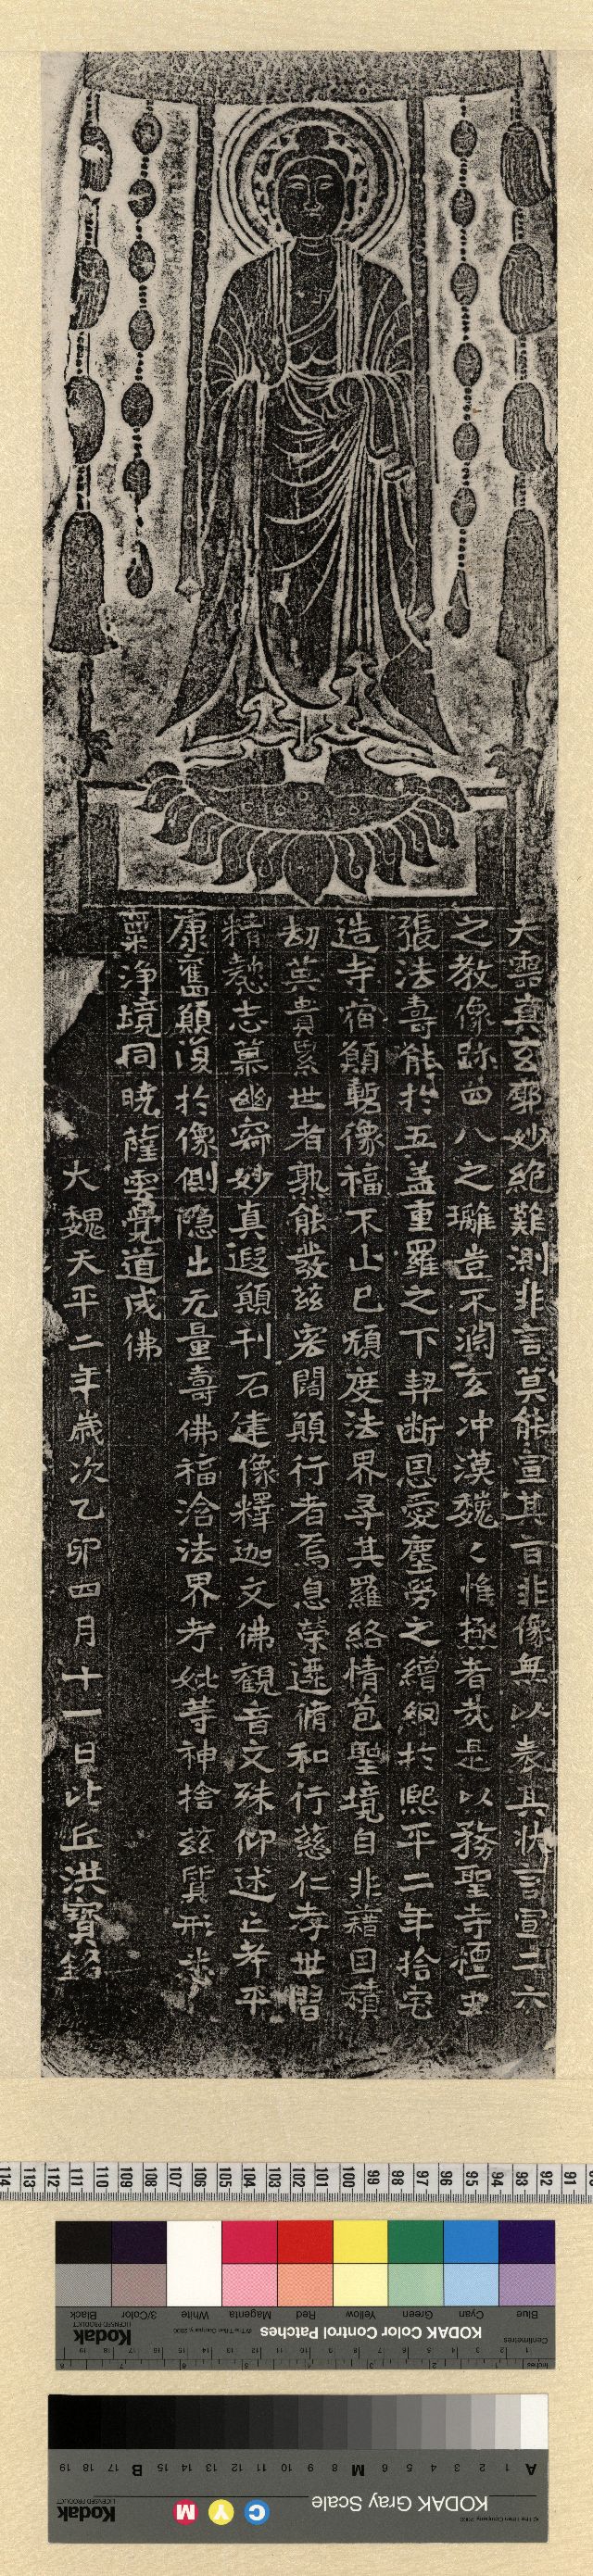 大靈真玄郭妙絕難測非言莫能宣其旨非像無以表其狀言宣二六
之教像跡四八之璣豈不淵玄冲漠巍〻惟極者㦲是以務聖寺檀主
張法壽能扵五盖重羅之下契断恩愛塵勞之繒網扵熈平二年捨宅
造寺宿願暫像福不止已頑度法界尋其羅絡情苞聖境自非藉因積
刼英貴累世者熟能發兹宏闊願行者焉息榮遷脩和行慈仁孝世習
精懃志慕幽寂妙真遐願刋石建像釋迦文佛觀音文殊仰述亡孝平
康舊願復扵像側隐出无量壽佛福洽法界考妣等神捨兹質形
粟浄境同曉薩雲覺道成佛
大魏天平二年歲次乙卯四月十一日比丘洪寳銘
114 113 112 111 110 109 108 107 106 105 104 103 102 101 100 99 98 97 96 95 94 93 92 91
KODAK Color Control Patches
Blue Cyan Green Yellow Red Magenta White 3/Color Black
Kodak
LICENSED PRODUCT
Centimetres
Inches
KODAK Gray Scale
C Y M
Kodak
LICENSED PRODUCT
A 1 2 3 4 5 6 M 8 9 10 11 12 13 14 15 B 17 18 19